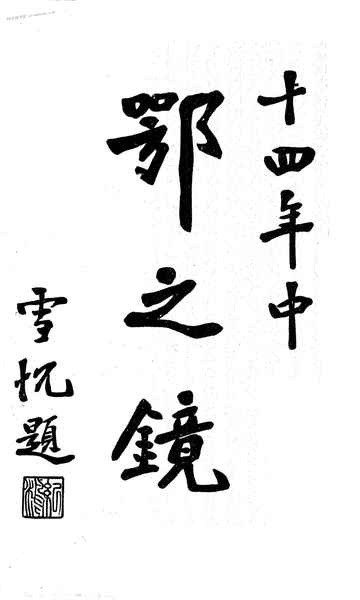 十四年中
鄂之鏡
雪忱題